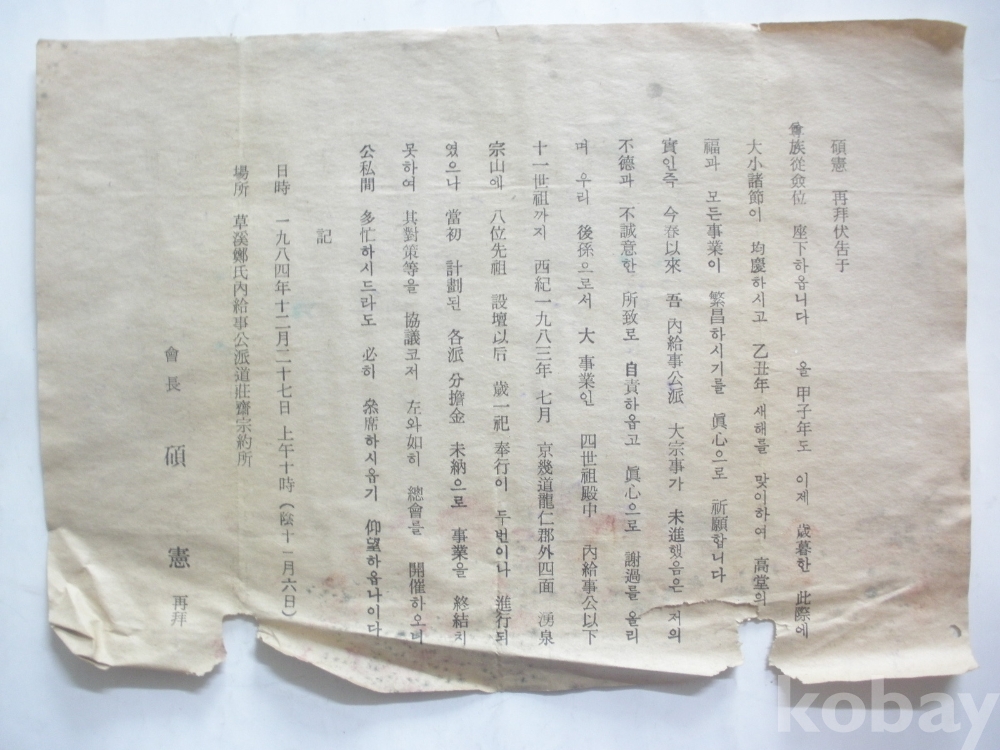 碩憲 再拜伏告于
彝族從僉位 座下하옵니다 올 甲子年도 이제 歲暮한 此際에
大小諸節이 均慶하시고 乙丑年 새해를 맞이하여 高堂의
福과 모든事業이 繁昌하시기를 眞心으로 祈願합니다
實인즉 今春以來 吾 內給事公派 大宗事가 未進했음은 저의
不德과 不誠意한 所致로 自責하옵고 眞心으로 謝過를 올리
며 우리 後孫으로서 大 事業인 四世祖殿中 內給事公以下
十一世祖까지 西紀一九八三年 七月 京幾道龍仁郡外四面 湧泉
宗山에 八位先祖 設壇以后 歲一祀 奉行이 두번이나 進行되
였으나 當初 計劃된 各派 分擔金 未納으로 事業을 終結치
못하여 其對策等을 協議코저 左와如히 總會를 開催하오니
公私間 多忙하시드라도 必히 參席하시옵기 仰望하옵나이다
記
日時 一九八四年十二月二十七日 上午十時(陰十一月六日)
場所 草溪鄭氏內給事公派道莊齋宗約所
會長 碩憲 再拜
kobay